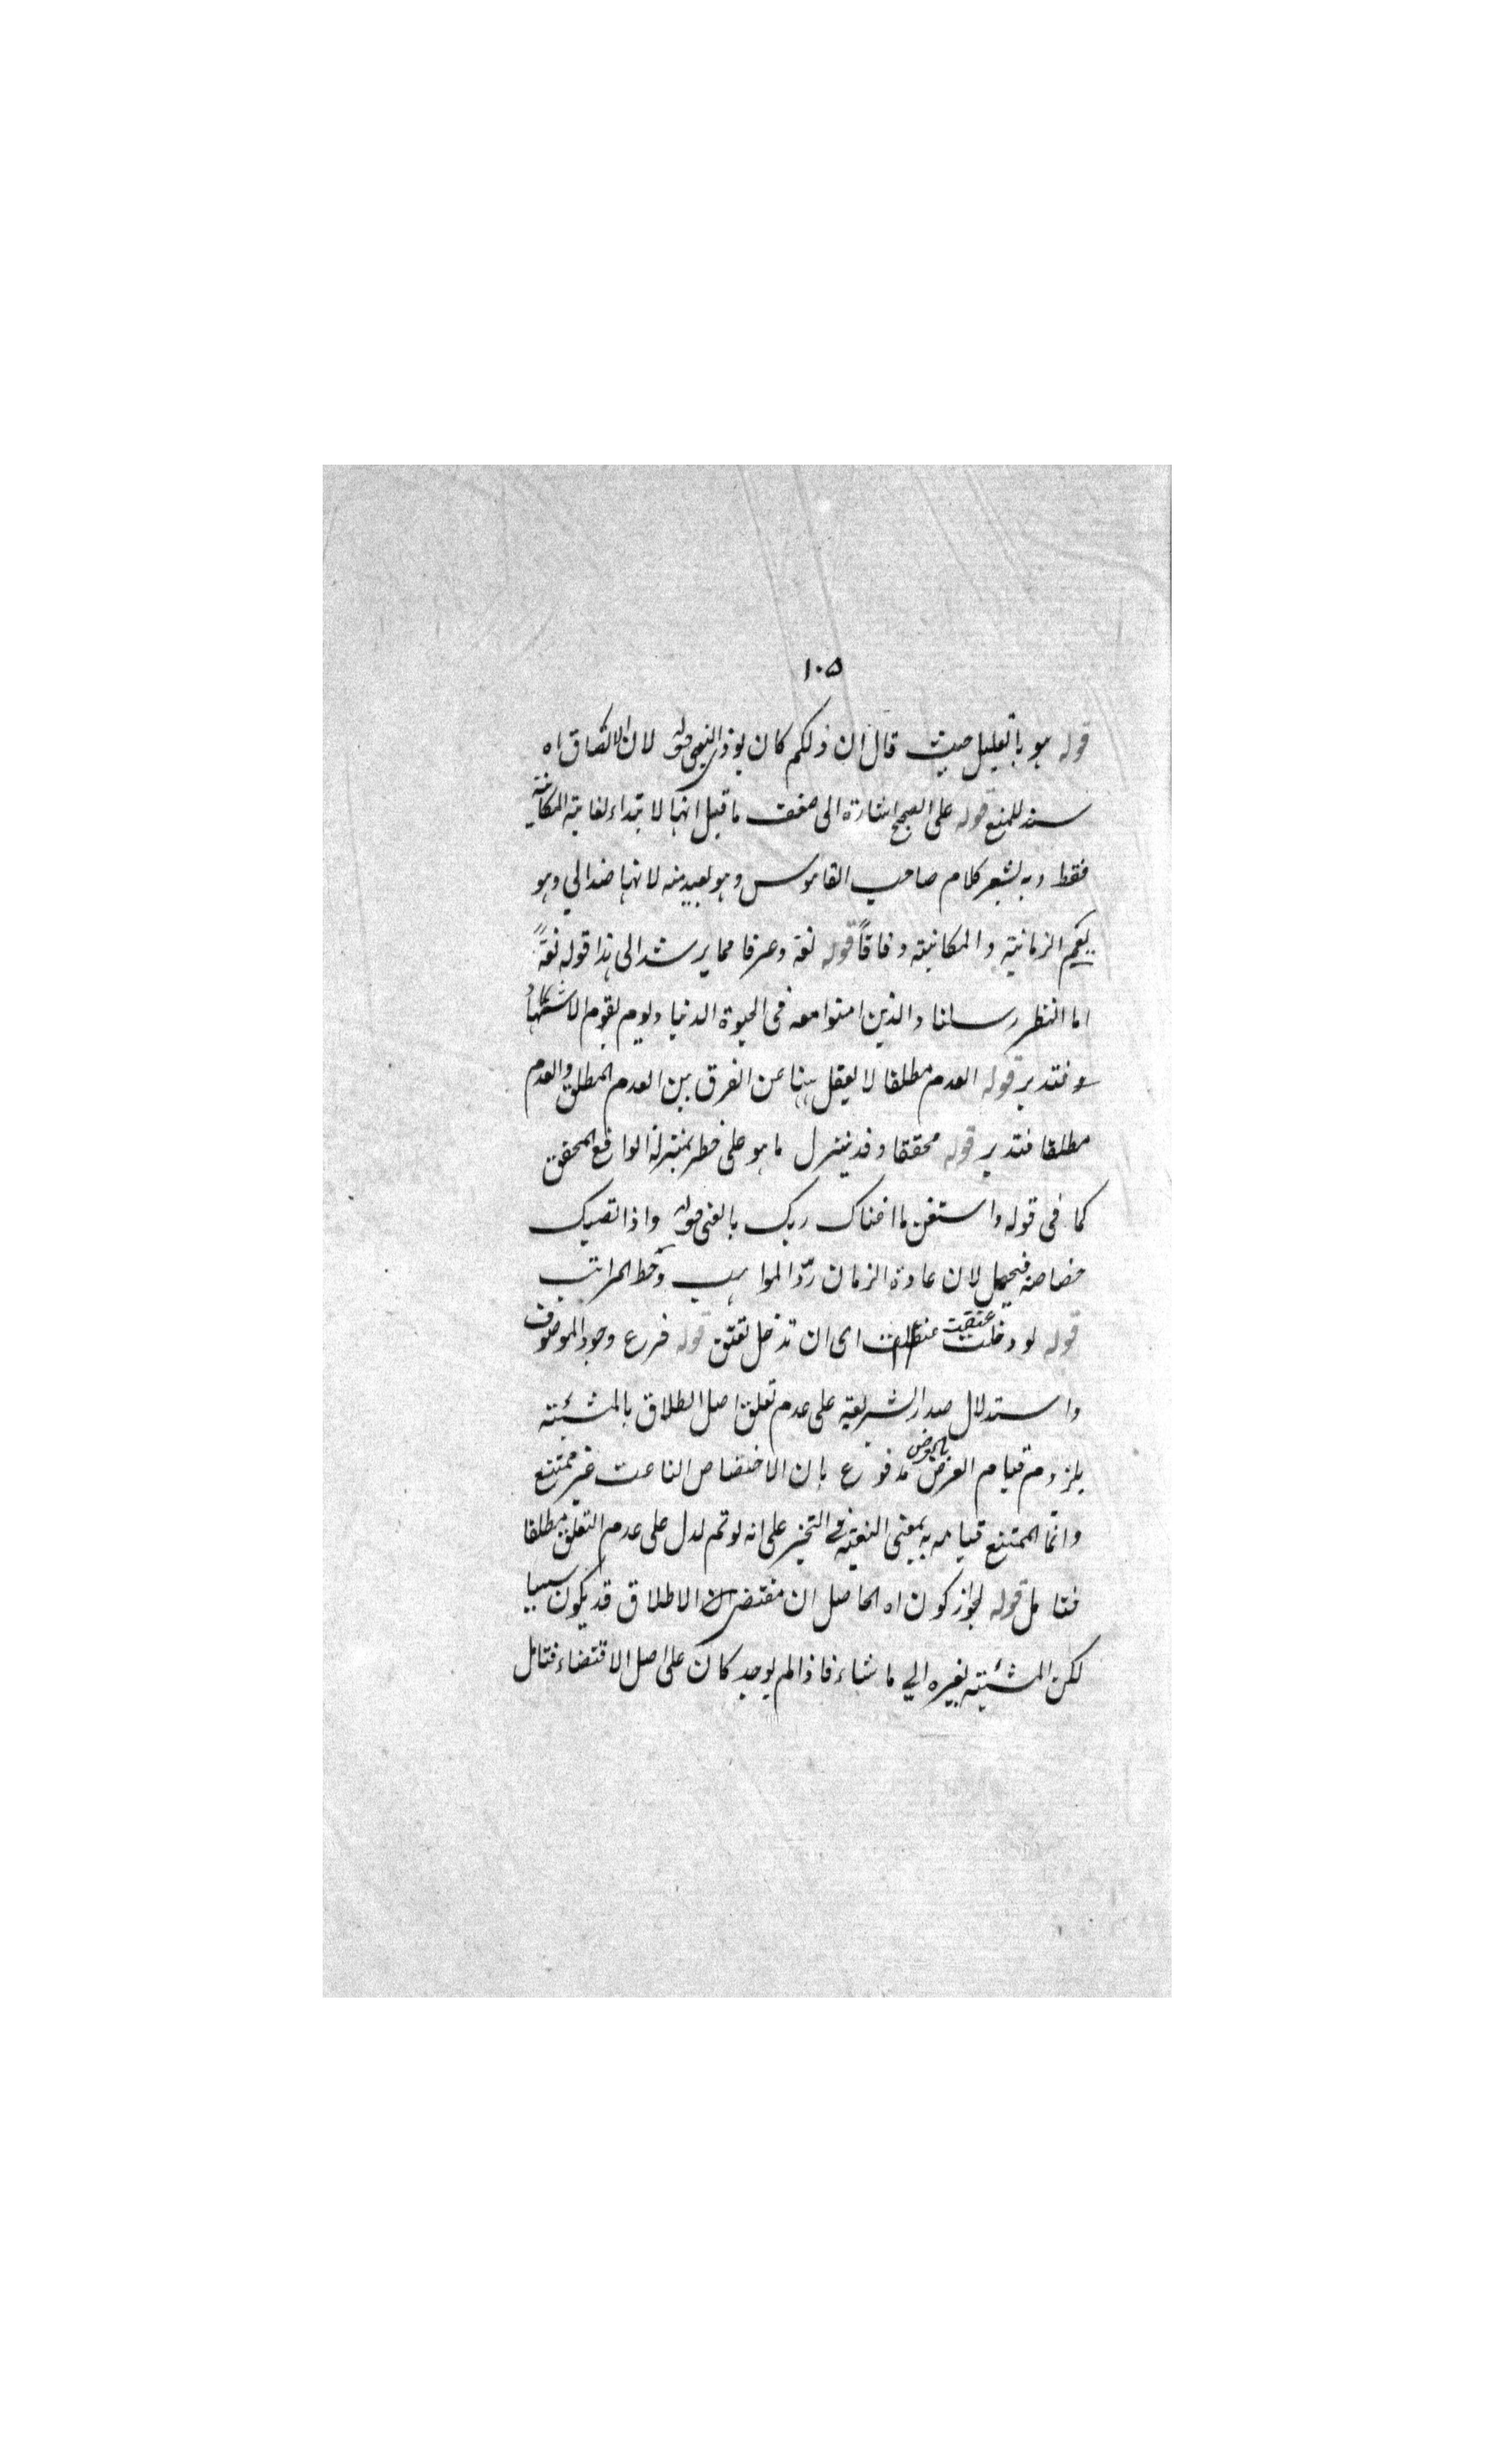 ١٠٥
قوله هو بالتعليل حيث قال ان ذلكم كان يوذى النبى قوله لان الالتصاق اه
سند للمنع قوله على الصحيح اشارة الى ضعف ما قيل انها لابتداء لغاية المكانية
فقط وبه يشعر كلام صاحب القاموس وهو بعيد منه لانها ضد الى وهو
يعم الزمانية والمكانية وفاقاً قوله لغة وعرفا مما يرشد الى هذا قوله لغةً
اما النظر رسلنا والذين امنوا معه فى الحيوة الدنيا ويوم يقوم الاشهاد
فتدبر قوله العدم مطلقا لا يعقل هنا عن الفرق بين العدم المطلق والعدم
مطلقا فتدبر قوله محققا وقد ينزل ما هو على خطر بمنزلة الواقع المحقق
كما فى قوله واستغن ما اغناك ربك بالغنى قوله واذا تصبك
خصاصة فتحمل لان عادة الزمان ردّ المواهب وحط المراتب
قوله لو دخلت عتقت اى ان تدخل تعتق قوله فرع وجود الموصوف
واستدلال صدر الشريعة على عدم تعلق اصل الطلاق بالمشيئة
بلزوم قيام العرض بالعرض مدفوع بان الاختصاص الناعت غير ممتنع
وانما الممتنع قيامه به بمعنى التبعية فى التحيز على انه لو تم لدل على عدم التعلق مطلقا
فتامل قوله لجواز كون اه الحاصل ان مقتضى الاطلاق قد يكون سببا
لكن المشيئة يغيره الى ما شاء فاذا لم يوجد كان على اصل الاقتضاء فتامل